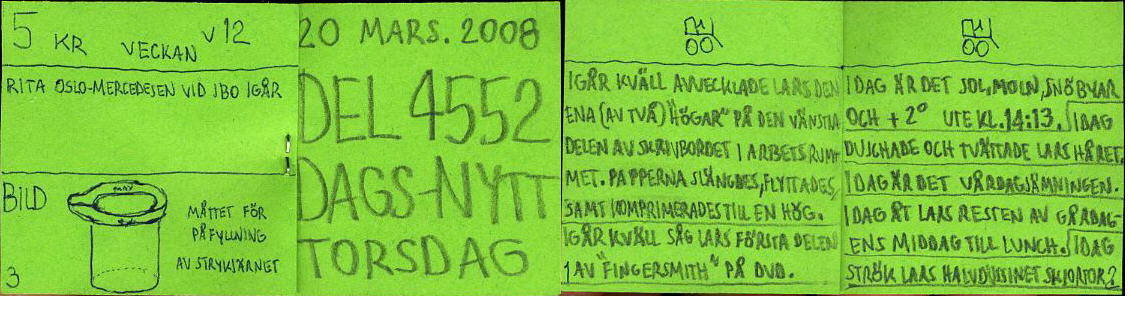 5 KR VECKAN V12
RITA OSLO-MERCEDESEN VID JBO IGÅR
BILD
MÅTTET FÖR
PÅFYLLNING
AV STRYKJÄRNET
3
MAX
20 MARS. 2008
DEL 4552
DAGS-NYTT
TORSDAG
IGÅR KVÄLL AVVECKLADE LARS DEN
ENA (AV TVÅ) "HÖGAR" PÅ DEN VÄNSTRA
DELEN AV SKRIVBORDET I ARBETSRUM-
MET. PAPPERNA SLÄNGDES, FLYTTADES,
SAMT KOMPRIMERADES TILL EN HÖG.
IGÅR KVÄLL SÅG LARS FÖRSTA DELEN
AV "FINGERSMITH" PÅ DVD.
IDAG ÄR DET SOL, MOLN, SNÖBYAR
OCH +2° UTE KL. 14:13. IDAG
DUSCHADE OCH TVÄTTADE LARS HÅRET.
IDAG ÄR DET VÅRDAGJÄMNINGEN.
IDAG ÅT LARS RESTEN AV GÅRDAG-
ENS MIDDAG TILL LUNCH. IDAG
STRÖK LARS HALVDUSSINET SKJORTOR?